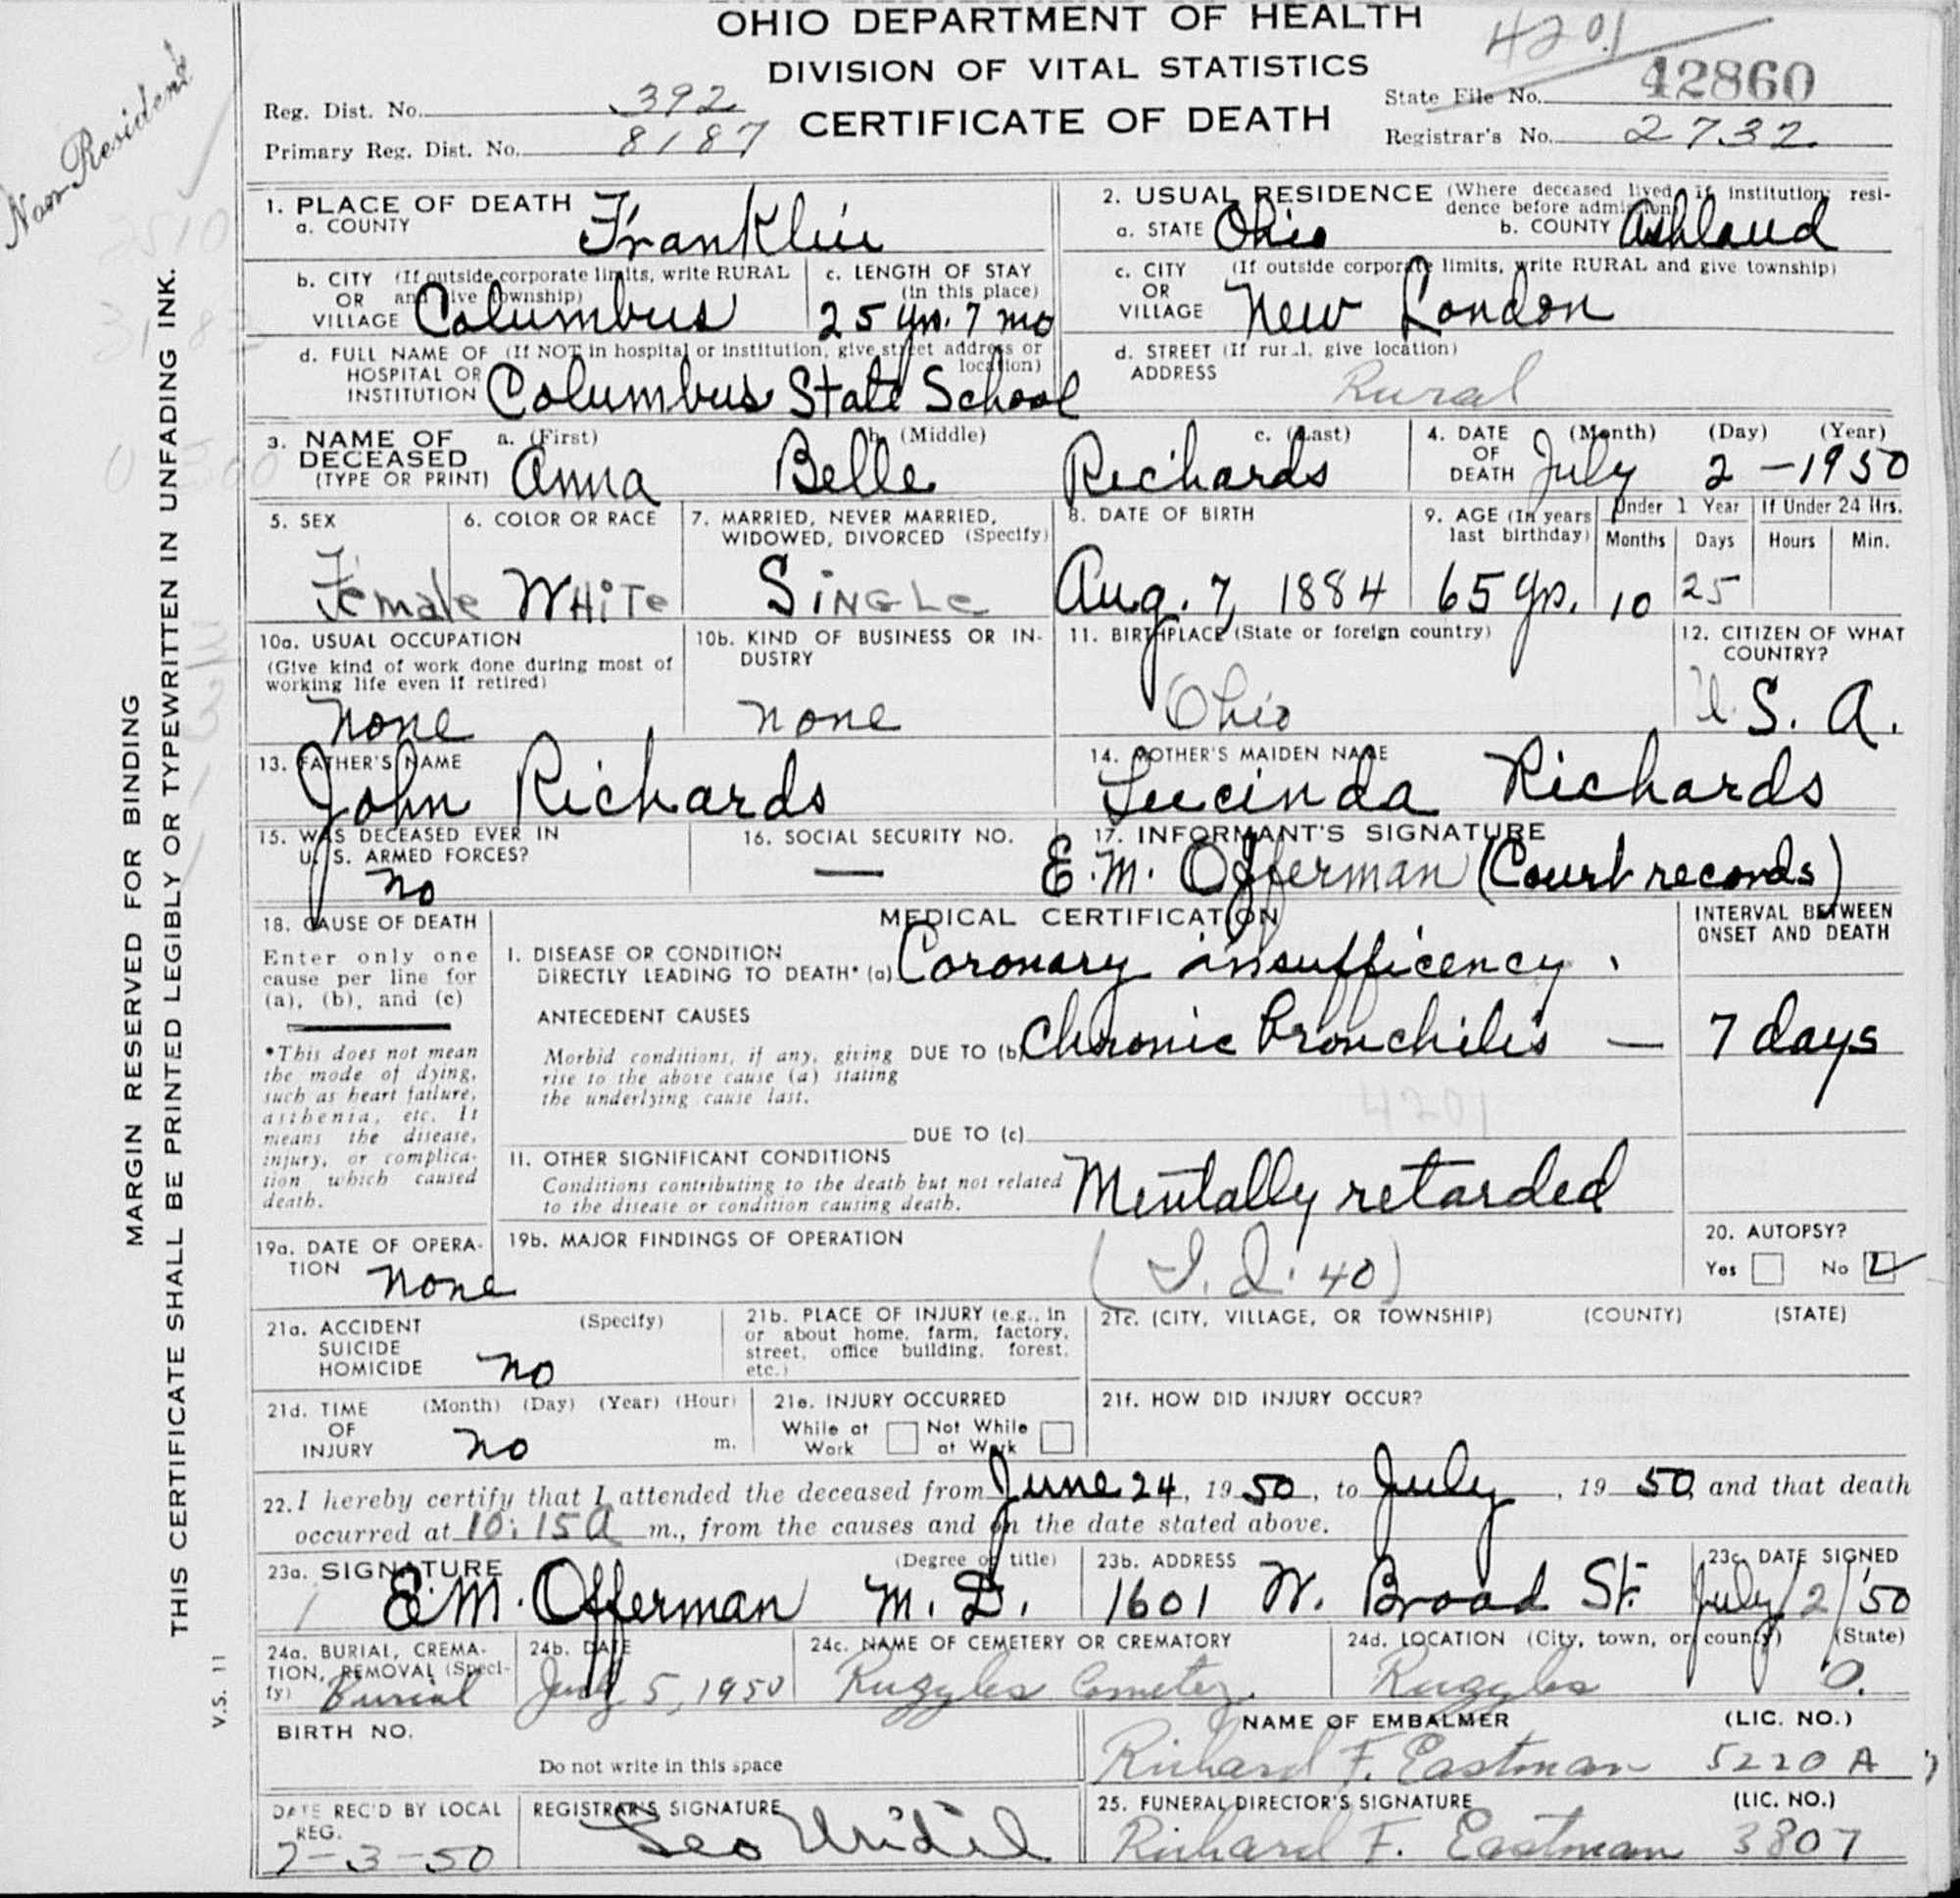 OHIO DEPARTMENT OF HEALTH
DIVISION OF VITAL STATISTICS
CERTIFICATE OF DEATH
4201
Reg. Dist. No. 392
Primary Reg. Dist. No. 8187
State File No. 42860
Registrar's No. 2732
Non Resident
MARGIN RESERVED FOR BINDING
THIS CERTIFICATE SHALL BE PRINTED LEGIBLY OR TYPEWRITTEN IN UNFADING INK.
V.S. 11
1. PLACE OF DEATH
a. COUNTY Franklin
2. USUAL RESIDENCE (Where deceased lived, if institution: residence before admission)
a. STATE Ohio b. COUNTY Ashland
b. CITY (If outside corporate limits, write RURAL
OR and give township)
VILLAGE Columbus
c. LENGTH OF STAY
(in this place)
25 yrs. 7 mo
c. CITY (If outside corporate limits, write RURAL and give township)
OR
VILLAGE New London
d. FULL NAME OF (If NOT in hospital or institution, give street address or
HOSPITAL OR location)
INSTITUTION Columbus State School
d. STREET (If rural, give location)
ADDRESS Rural
3. NAME OF DECEASED
(TYPE OR PRINT)
a. (First) b. (Middle) c. (Last)
Anna Belle Richards
4. DATE OF DEATH (Month) (Day) (Year)
July 2 - 1950
5. SEX
Female
6. COLOR OR RACE
WHiTe
7. MARRIED, NEVER MARRIED,
WIDOWED, DIVORCED (Specify)
SiNGLe
8. DATE OF BIRTH
Aug. 7, 1884
9. AGE (In years
last birthday)
65 yrs.
Under 1 Year
Months Days
10 25
If Under 24 Hrs.
Hours Min.
10a. USUAL OCCUPATION
(Give kind of work done during most of
working life even if retired)
None
10b. KIND OF BUSINESS OR INDUSTRY
none
11. BIRTHPLACE (State or foreign country)
Ohio
12. CITIZEN OF WHAT
COUNTRY?
U.S.A.
13. FATHER'S NAME
John Richards
14. MOTHER'S MAIDEN NAME
Lucinda Richards
15. WAS DECEASED EVER IN
U. S. ARMED FORCES?
No
16. SOCIAL SECURITY NO.
—
17. INFORMANT'S SIGNATURE
E.M. Offerman (Court records)
18. CAUSE OF DEATH
Enter only one
cause per line for
(a), (b), and (c)
*This does not mean
the mode of dying,
such as heart failure,
asthenia, etc. It
means the disease,
injury, or complica-
tion which caused
death.
MEDICAL CERTIFICATION
INTERVAL BETWEEN
ONSET AND DEATH
I. DISEASE OR CONDITION
DIRECTLY LEADING TO DEATH* (a) Coronary insufficency.
ANTECEDENT CAUSES
Morbid conditions, if any, giving
rise to the above cause (a) stating
the underlying cause last.
DUE TO (b) Chronic Bronchitis — 7 days
4201
DUE TO (c)
II. OTHER SIGNIFICANT CONDITIONS
Conditions contributing to the death but not related
to the disease or condition causing death.
Mentally retarded
(I.Q. 40)
19a. DATE OF OPERA-
TION None
19b. MAJOR FINDINGS OF OPERATION
20. AUTOPSY?
Yes No
21a. ACCIDENT (Specify)
SUICIDE
HOMICIDE No
21b. PLACE OF INJURY (e.g., in
or about home, farm, factory,
street, office building, forest,
etc.)
21c. (CITY, VILLAGE, OR TOWNSHIP) (COUNTY) (STATE)
21d. TIME (Month) (Day) (Year) (Hour)
OF
INJURY No m.
21e. INJURY OCCURRED
While at Work Not While at Work
21f. HOW DID INJURY OCCUR?
22. I hereby certify that I attended the deceased from June 24, 1950, to July, 1950, and that death
occurred at 10:15 A m., from the causes and on the date stated above.
23a. SIGNATURE (Degree or title)
E.M. Offerman M.D.
23b. ADDRESS
1601 W. Broad St.
23c. DATE SIGNED
July/2/'50
24a. BURIAL, CREMA-
TION, REMOVAL (Speci-
fy) Burial
24b. DATE
July 5, 1950
24c. NAME OF CEMETERY OR CREMATORY
Ruggles Cemetery
24d. LOCATION (City, town, or county) (State)
Ruggles O.
BIRTH NO.
Do not write in this space
NAME OF EMBALMER (LIC. NO.)
Richard F. Eastman 5220 A
DATE REC'D BY LOCAL
REG.
7-3-50
REGISTRAR'S SIGNATURE
Leo
25. FUNERAL DIRECTOR'S SIGNATURE (LIC. NO.)
Richard F. Eastman 3807